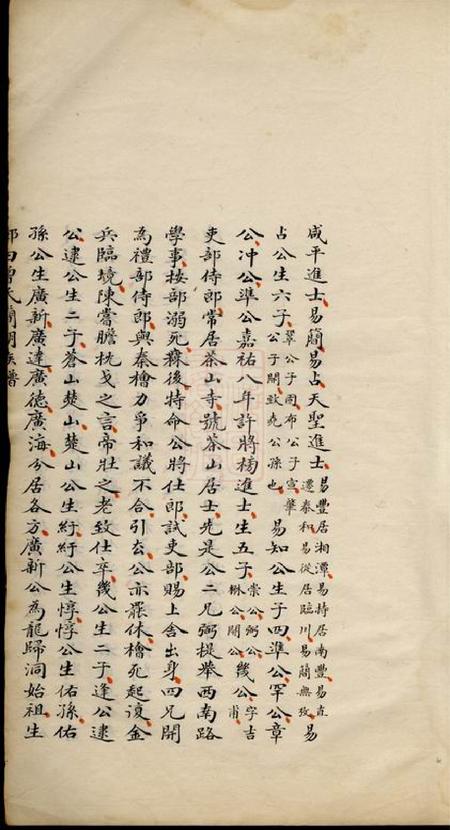 咸平進士易簡易占天聖進士易豐居湘潭易持居南豐易直遷泰和易從居臨川易簡無攷易
占公生六子鞏公子開致堯公孫也易知公生子四準公罕公章
公沖公準公嘉祐八年許將榜進士生五子崇公弼公楙公開公幾公字吉甫
吏部侍郎常居茶山寺號茶山居士先是公二兄弼提舉西南路
學事按部溺死無後特命公將仕郎試吏部賜上舍出身四兄開
為禮部侍郎與秦檜力爭和議不合引去公亦罷休檜死起復金
兵臨境陳嘗膽枕戈之言帝壯之老致仕卒幾公生二子逢公逮
公逮公生二子蒼山楚山楚山公生紆紆公生惇惇公生佑孫佑
孫公生廣新廣達廣德廣海分居各方廣新公為龍歸洞始祖生